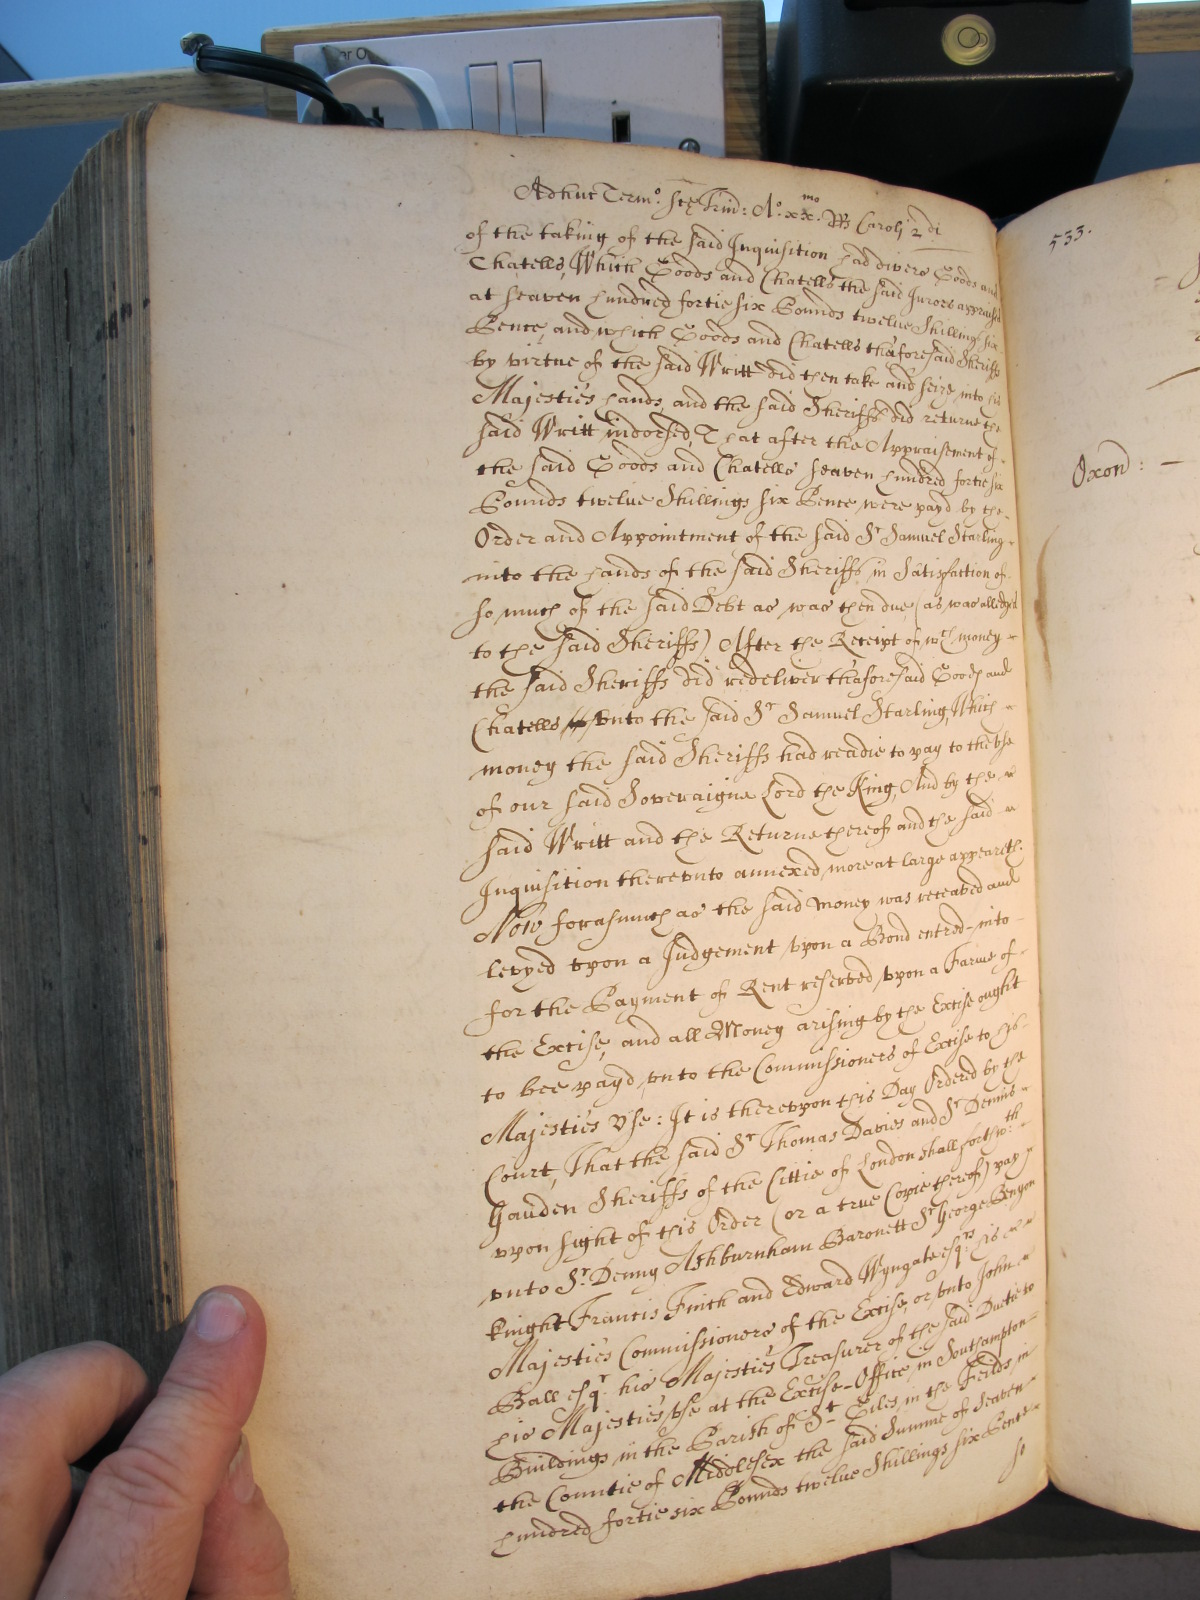 Adhuc Termo. Scẽ Trin: Ao. xxmo. Rs Caroli 2di
of the taking of the said Inquisition had divers Goods and
Chatells, Which Goods and Chatells the said Jurors appraised
at seaven hundred fortie six Pounds twelve Shillings six
Pence, and which Goods and Chatells thaforesaid Sheriffs
by virtue of the said Writt did then take and seize into his
Majesties hands, and the said Sheriffs did returne the
said Writt indorsed, That after the Appraisement of
the said Goods and Chatells seaven hundred fortie six
Pounds twelve Shillings six Pence were payd by the
Order and Appointment of the said Sr Samuel Starling
into the hands of the said Sheriffs in Satisfaction of
so much of the said Debt as was then due (as was alledged
to the said Sheriffs) After the Receipt of wch money
the said Sheriffs did redeliver thaforesaid Goods and
Chatells vnto the said Sr Samuel Starling, Which
money the said Sheriffs had readie to pay to the vse
of our said Soveraigne Lord the King, And by the
said Writt and the Returne thereof and the said
Inquisition therevnto annexed, more at large appeareth:
Now forasmuch as the said money was receaved and
levyed vpon a Judgement vpon a Bond entred into
for the Payment of Rent reserved vpon a Farme of
the Excise, and all Money arising by the Excise ought
to bee payd vnto the Commissioners of Excise to his
Majesties Vse: It is therevpon this Day Ordered by the
Court, That the said Sr Thomas Davies and Sr Dennis
Gauden Sheriffs of the Cittie of London shall forthwth
vpon sight of this Order (or a true Copie thereof) pay
vnto Sr Denny Ashburnham Baronett Sr George Benyon
knight Francis Finch and Edward Wyngate esqrs his
Majesties Commissioners of the Excise, or vnto John
Ball esqr his Majesties Treasurer of the said Duetie to
his Majesties vse at the Excise-Office in Southampton
Buildings in the Parish of St Giles in the Feilds in
the Countie of Middlesex the said Summe of Seaven
hundred fortie six Pounds twelve Shillings six Pence
so
533.
Oxon: